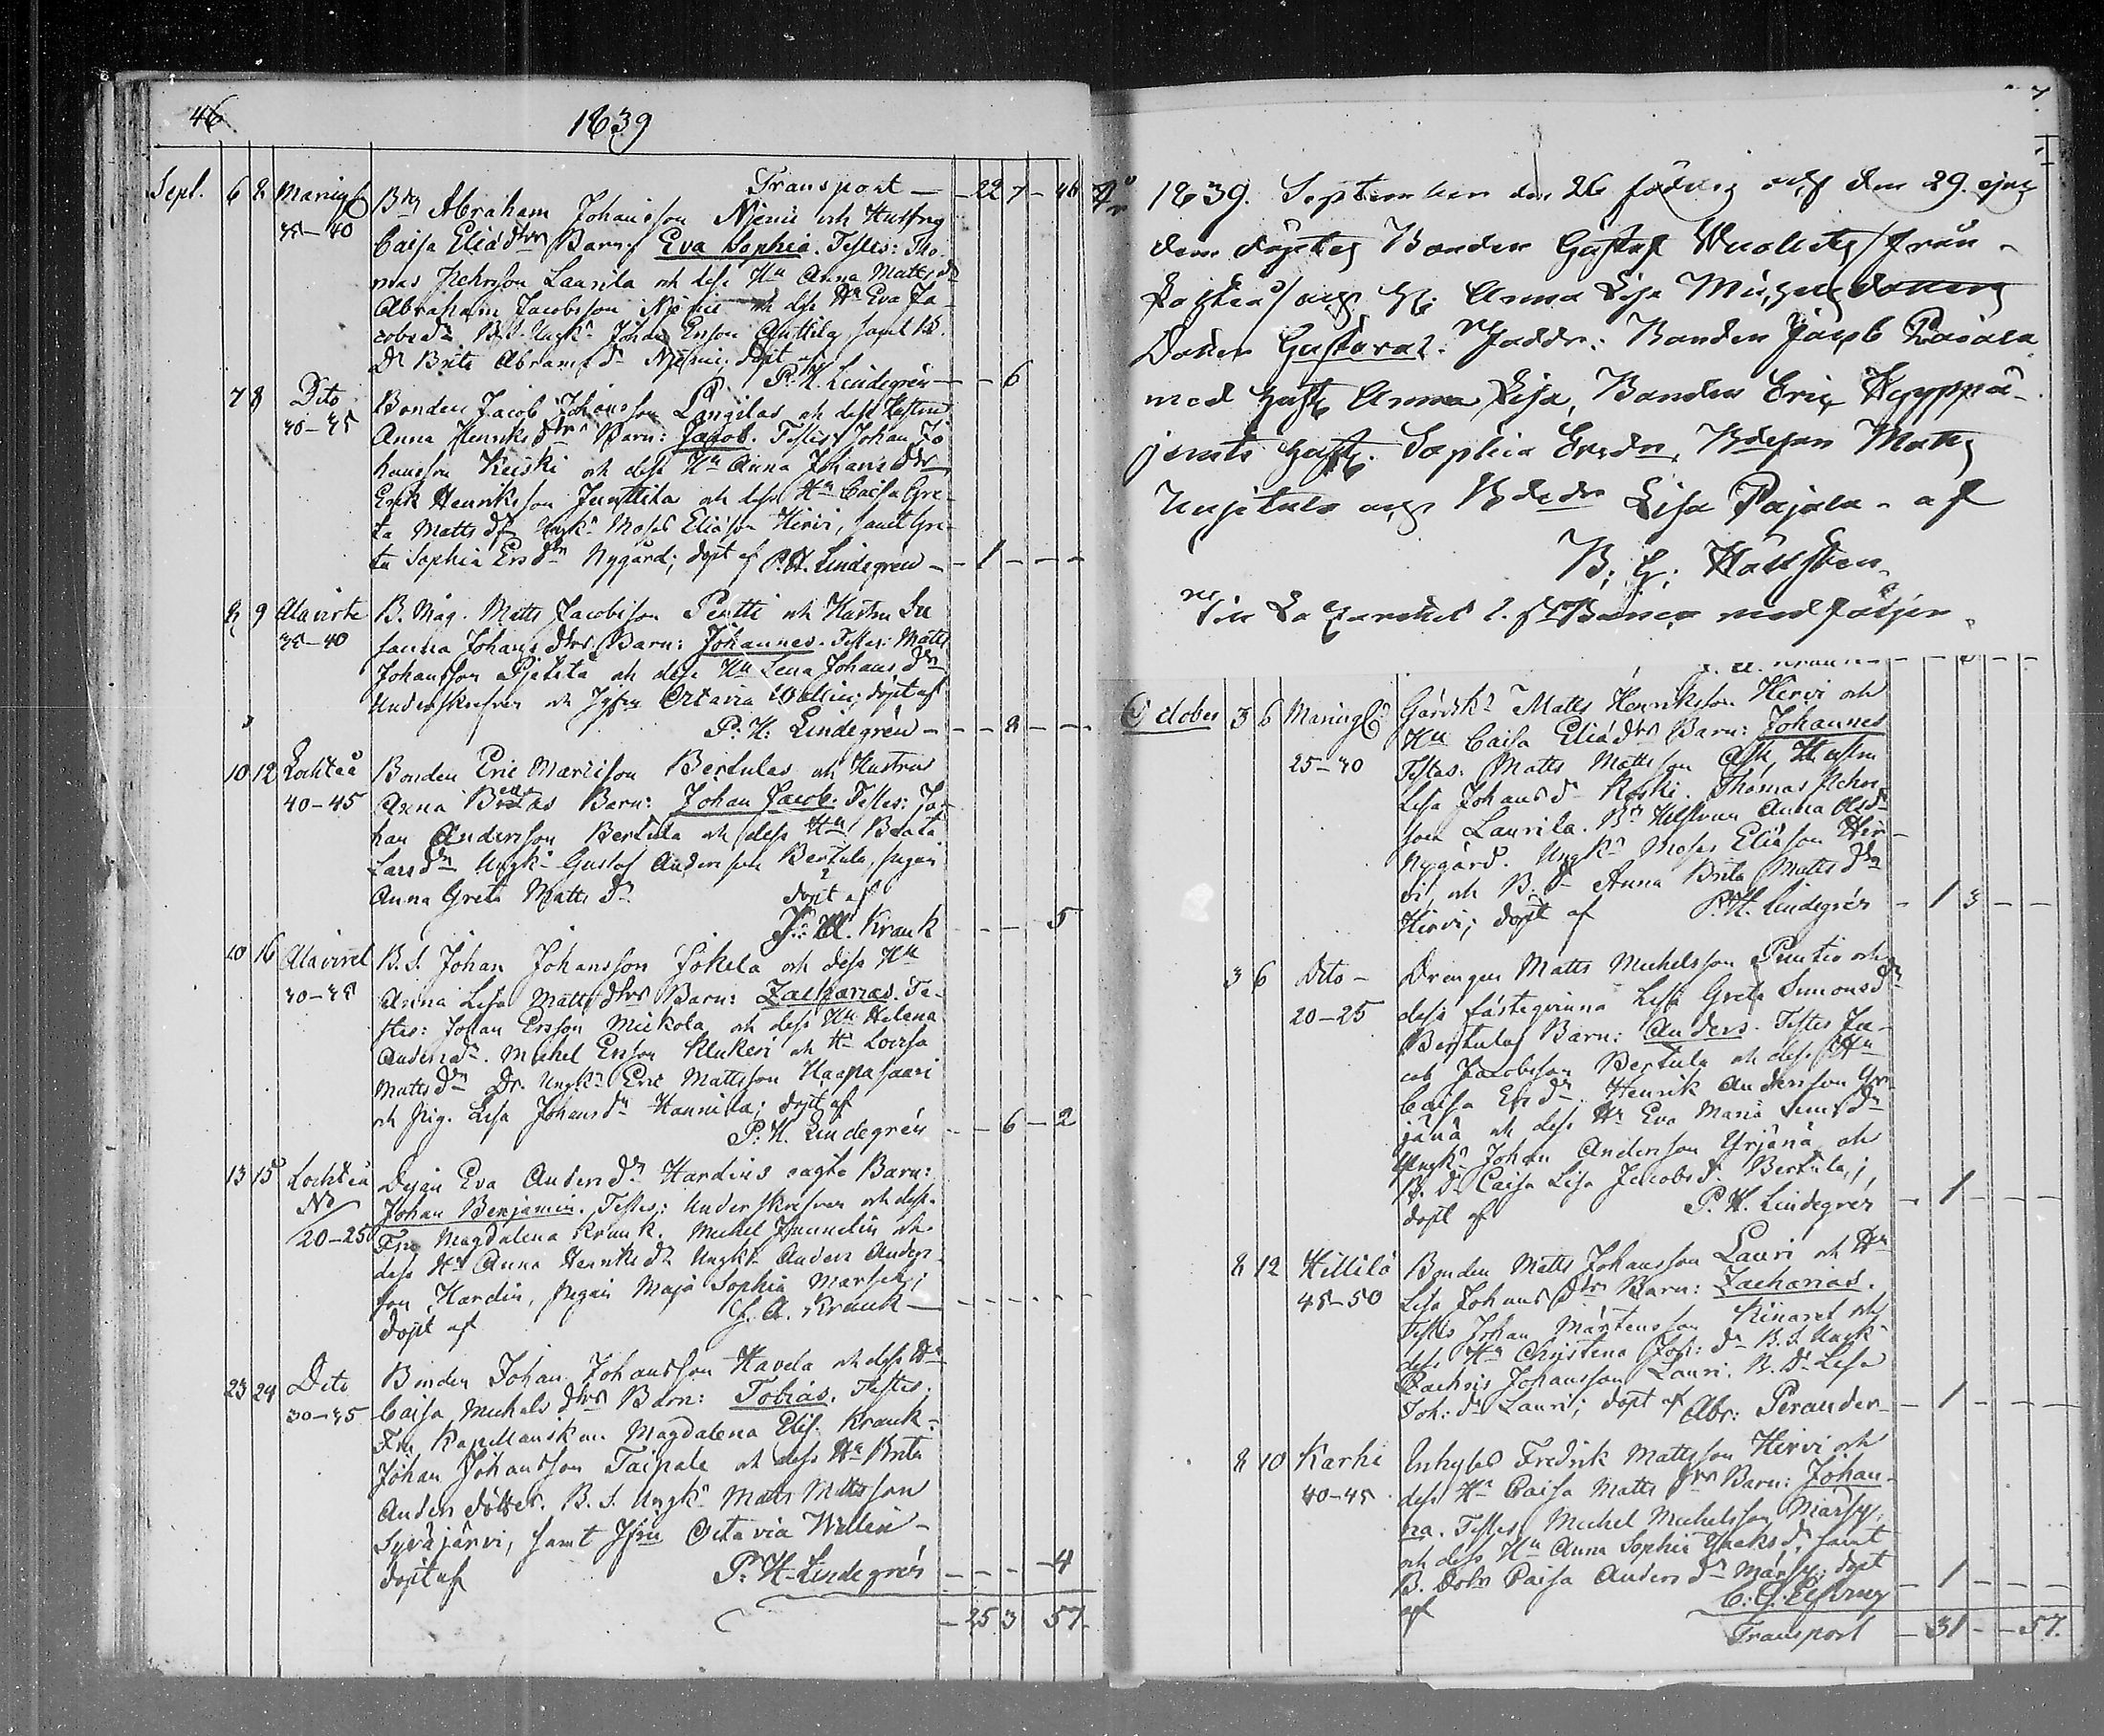 46
1839
Transport — 22 7 — 46
Sept. 6 8 Maningb. Bdn Abraham Johansson Niemi och Hustru
35–40 Caisa Eliædtrs Barn: Eva Sophia. Testes: Tho-
mas Laurila och dess Hu Anna Matts dr
Abraham Jacobsson Niemi och dess Hu Eva Ja-
cobs dr B.S. Ungk. Johan Ersson Anttila, samt B.
Dr Brita Abrams dr Niemi; döpt af
P. H. Lindegrén — — 6
7 8 Dito Bonden Jacob Johansson Längilas och dess Hustru
30–35 Anna Henriks dtrs Barn: Jacob. Testes: Johan Jo
hansson Keiski och dess Hu Anna Johans dtr
Erik Henriksson Junttila och dess Hu Caisa Gre-
ta Matts dtr Ungk. Moses Eliæson Hirvi, samt Gre-
ta Sophia Ers dr Nygård; döpt af P. H. Lindegren — 1 — —
8 9 Alavirte B. Måg. Matts Jacobsson Pentti och Hustru Su
35–40 sanna Johans dtrs Barn: Johannes. Testes: Matts
Johansson Pjetilä och dess Hu Lena Johans dtr
Underskrefven och Jgfru Octavia Wallin; döpt af
P: H: Lindegrén — — 8 — —
10 12 Lochteå Bonden Eric Ma Bertulas och Hustru
40–45 Anna Barn: Johan Jacob. Testes: Jo-
han Andersson Bertula och dess Hu Beata
Lars dr Ungk. Gustaf Andersson Bertula, pigan
Anna Greta Matts dr döpt af
Krank — — 5
10 16 Alaviret B. S. Johan Johansson Jokela och dess Hu
30–35 Anna Lisa Matts dtrs Barn: Zacharias. Te-
stes: Johan Ersson Mickola och dess Hu Helena
Anders dr. Michel Ersson Klukeri och Hu Lovisa
Matts dr Dr. Ungk. Eric Mattsson Haapasaari
och Pig. Lisa Johans dr Hannila; döpt af
P: H. Lindegrén — — 6 — 2
13 15 Lochteå Dejan Eva Anders dr Hardins oägta Barn:
NB Johan Benjamin. Testes: Underskrefven och dess
20–25 Fru Magdalena Krank. Michel och
dess Hu Anna Henriks dr Ungk. Anders Anders-
son Hardin, pigan Maja Sophia Marsek;
döpt af J. A. Krank — — — — —
23 24 Dito Bonden Johan Johansson Havela och dess Hu
30–35 Caisa Michels dtrs Barn: Tobias. Testes.
Fru Kapellanskan Magdalena Elis. Krank.
Johan Johansson Taipale och dess Hu Brita
Anders dotter. B. S. Ungk. Matts Mattsson
Syväjärvi, samt Jfru Octavia Wallin —
döpt af P: H. Lindegrén — — — 4
— 25 3 57.
1839. September den 26 föddes och den 29. ejus
dem döptes Bonden Gustaf från
Lochteå och H: Anna Lisa
Dotter Gustava. Faddr: Bonden Jacob Pajala
med Hust Anna Lisa, Bonden Eric
jemte Hust. Sophia Ersdr, Bdeson Matts
och Bdedr Lisa Pajala. af
B: G: Hällsten
Krank
October 3 6 Maningb. Gårdsk. Matts Henriksson Hirvi och
Hu Caisa Eliædtrs Barn: Johannes
25–30 Testes: Matts Mattsson Ask, Hustru
Lisa Johans dr Koski. Thomas
son Laurila. Bds Hustrun Anna Ols dr
Nygård. Ungk. Moses Eliæson Hir-
vi, och B. dr Anna Brita Matts dtr
Hirvi; döpt af P. H. Lindegrén — 1 3 — —
3 6 Dito — Drängen Matts Michelsson Puntio och
dess fästeqvinna Lisa Greta Simons dr
20–25 Bertulas Barn: Anders. Testes Ja-
cob Jacobsson Bertula och dess Hu
Caisa Ers dr. Henrik Andersson Yr-
jänä och dess Hu Eva Maria Sims dr
Ungk. Johan Andersson Yrjänä och
B. dr Caisa Lisa Jacobs dr. Bertula;
döpt af P. H. Lindegrén — 1 — — —
8 12 Hillilä Bonden Matts Johansson Lauri och Hu
45–50 Lisa Johans dtrs Barn: Zacharias.
Testes Johan Mårtensson Kinaret och
dess Hu Christina Joh: dr B. S. Ungk.
Zachris Johansson Lauri. B. dr Lisa
Joh: dr Lauri; döpt af Abr: Perander — 1 — — —
8 10 Karhi Inhyses Fredrik Mattsson Hirvi och
40–45 dess Hu Caisa Matts dtrs Barn: Johan-
na. Testes Michel Michelsson Märsy,
och dess Hu Anna Sophia dr samt
B. Dotr Caisa Anders dr Märsy; döpt
af C: G: Elfving — 1 — — —
Transport — 31 — — 57.